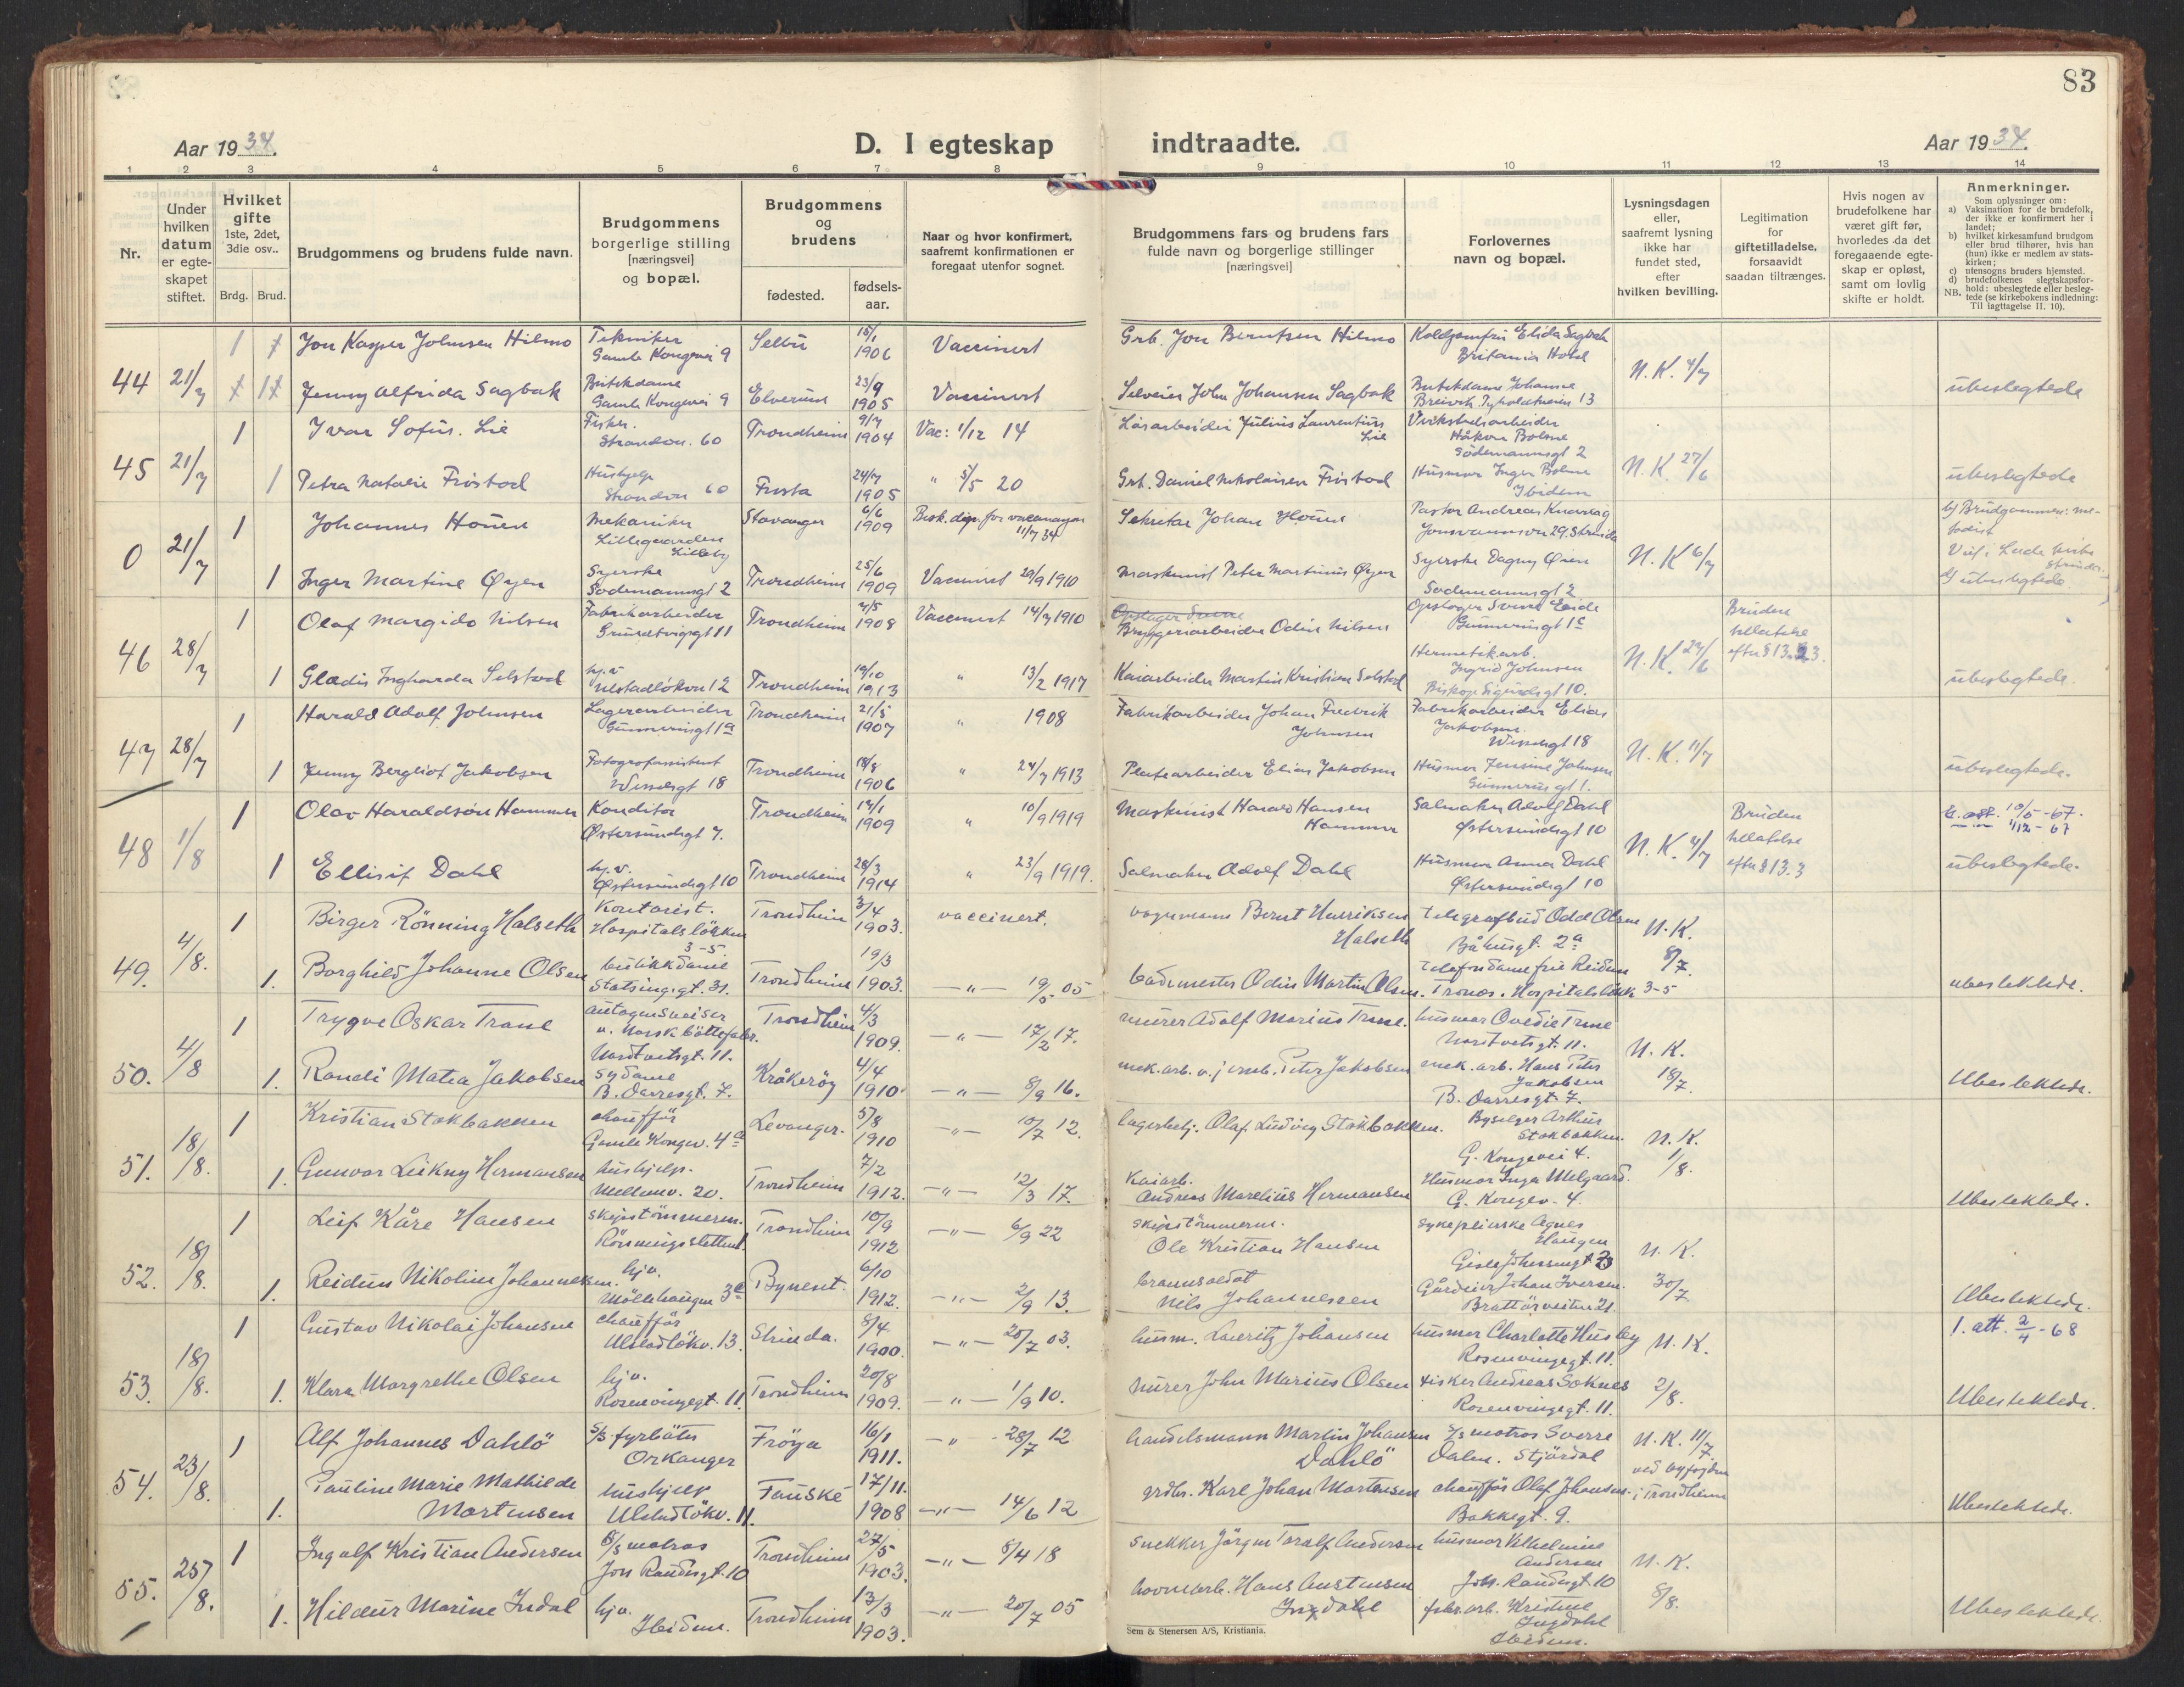 83
Aar 1934.
D. I egteskap indtraadte.
Aar 1934.
1 2 3 4 5 6 7 8 9 10 11 12 13 14
Nr.
Under hvilken datum er egteskapet stiftet.
Hvilket gifte 1ste, 2det, 3die osv..
Brdg. Brud.
Brudgommens og brudens fulde navn.
Brudgommens borgerlige stilling [næringsvei] og bopæl.
Brudgommens og brudens
fødested. fødselsaar.
Naar og hvor konfirmert, saafremt konfirmationen er foregaat utenfor sognet.
Brudgommens fars og brudens fars fulde navn og borgerlige stillinger [næringsvei]
Forlovernes navn og bopæl.
Lysningsdagen eller, saafremt lysning ikke har fundet sted, efter hvilken bevilling.
Legitimation for giftetilladelse, forsaavidt saadan tiltrænges.
Hvis nogen av brudefolkene har været gift før, hvorledes da det foregaaende egteskap er opløst, samt om lovlig skifte er holdt.
Anmerkninger.
Som oplysninger om:
a) Vaksination for de brudefolk, der ikke er konfirmert her i landet;
b) hvilket kirkesamfund brudgom eller brud tilhører, hvis han (hun) ikke er medlem av statskirken;
c) utensogns bruders hjemsted.
d) brudefolkenes slegtskapsforhold: ubeslegtede eller beslegtede (se kirkebokens indledning: NB. Til iagttagelse II. 10).
44 21/7
1 Jon Kasper Johnsen Hilmo Tekniker Gamle Kongevei 9 Selbu 15/1 1906 Vaccinert Grb. Jon Berntsen Hilmo Koldjomfru Elida Sagbak Britania Hotel N.K. 4/7
1 Jenny Alfrida Sagbak Butikdame Gamle Kongevei 9 Elverum 23/9 1905 Vaccinert Selveier John Johansen Sagbak Butikdame Johanne Breivik Tyholdtveien 13 ubeslegtede
45 21/7
1 Ivar Sofus. Lie Fisker. Strandvn. 60 Trondheim 9/7 1904 Vac: 1/12 14 Losarbeider Julius Laurentius Lie Verkstedsarbeider Håkon Bolme Södemannsgt 2 N.K. 27/6
1 Petra Natalie Fröstad Hushjelp Strandvn 60 Frosta 24/7 1905 " 5/5 20 Grb. Daniel Nikolaisen Fröstad Husmor Inger Bolme Ibidem ubeslegtede
0 21/7
1 Johannes Houen Mekaniker Lillegaarden Lilleby Stavanger 6/6 1909 Bisk. disp. for vaccinasjon 11/7 34 Sekretær Johan Houen Pastor Andreas Knarrag Jonsvannsvn 29. Strinda N.K 6/7 b) Brudgommen: metodist Viet i Lade kirke Strinda
1 Inger Martine Øyen Syerske Sodemannsgt 2 Trondheim 25/6 1909 Vaccinert 29/9 1910 Maskinist Peter Martinus Øyen Syerske Dagny Øien Sodemannsgt 2 d) ubeslegtede
46 28/7
1 Olaf Margido Nilsen Fabrikarbeider Grundtvigsgt 11 Trondheim 4/5 1908 Vaccinert 14/7 1910 Bryggeriarbeider Odin Nilsen Opsloger Svend Eide Gunnerusgt 1c N.K. 27/6 Bruden tillatelse efter § 13.3.
1 Gladis Ingharda Selstad hj.v. Ulstadlökvn 12 Trondheim 19/10 1913 " 13/2 1917 Kaiarbeider Martin Kristian Selstad Hermetikarb. Ingrid Johnsen Biskop Sigurdsgt 10. ubeslegtede.
47 28/7
1 Harald Adolf Johnsen Lagerarbeider Gunnerusgt 1a Trondheim 21/5 1907 " 1908 Fabrikarbeider Johan Fredrik Johnsen Fabrikarbeider Elias Jakobsen Wesselsgt 18 N.K. 11/7
1 Jenny Bergliot Jakobsen Fotografassistent Wesselsgt 18 Trondheim 18/8 1906 " 24/7 1913 Platearbeider Elias Jakobsen Husmor Jensine Johnsen Gunnerusgt 1. ubeslegtede.
48 1/8
1 Olav Haraldsön Hammer Konditor Østersundsgt 7. Trondheim 14/1 1909 " 10/9 1919 Maskinist Harald Hansen Hammer Salmaker Adolf Dahl Østersundsgt 10 N.K. 4/7 Bruden tillatelse efter § 13.3 L. att. 10/5-67. — " — 4/12-67
1 Ellisif Dahl hj.v. Østersundsgt 10 Trondheim 28/3 1914 " 23/9 1919. Salmaker Adolf Dahl Husmor Anna Dahl Østersundsgt 10 ubeslegtede.
49. 4/8.
1 Birger Rönning Halseth Kontorist. Hospitalslökken 3-5 Trondheim 3/4 1903. vaccinert. vognmann Bernt Henriksen Halseth telegrafbud Odd Olsen Båhusgt. 2a N.K. 8/7.
1. Borghild Johanne Olsen butikkdame Statsingsgt. 31. Trondheim 19/3 1903. —"— 19/5 05 bademester Odin Martin Olsen. telefondame frk Reidun Trones. Hospitalslökk 3-5 ubeslektede.
50. 4/8
1 Trygve Oskar Trane autogensveiser v. Norsk böttefabr. Nordtvetsgt. 11. Trondheim 4/3 1909. —"— 17/2 17. murer Adolf Marius Trane. husmor Ovedie Trane Nordtvetsgt. 11. N.K. 18/7.
1. Randi Matea Jakobsen sydame B. Darresgt. 7. Kråkeröy 4/4 1910. —"— 8/9 16. mek. arb. v. jernb. Peter Jakobsen mek. arb. Hans Peter Jakobsen B. Darresgt 7. Ubeslektede.
51. 18/8.
1 Kristian Stokbakken chaufför Gamle Kongev. 4a Levanger. 5/8 1910 —"— 10/7 12. lagerbetj. Olaf Ludvig Stokbakken. Byselger Arthur Stokbakken. G. Kongevei 4. N.K. 1/8.
1. Gunvor Leikny Hermansen hushjelp. Mellomv. 20. Trondheim 7/2 1912. —"— 12/3 17. Kaiarb. Andreas Marelius Hermansen Husmor Inga Melgaard. G. Kongev. 4. Ubeslektede.
52. 18/8.
1 Leif Kåre Hansen skipstömmerm. Rönningsletten 1. Trondheim 10/9 1912 —"— 6/9 22 skipstömmerm. Ole Kristian Hansen sykepleierske Agnes Haugen N.K. 30/7
1. Reidun Nikoline Johannessen. hjv. Möllehaugen 3e Bynesset. 6/10 1912. —"— 2/9 13. brannsoldat Nils Johannessen Gårdeier Johan Iversen. Brattörveiten 21. Ubeslektede.
53. 18/8.
1 Gustav Nikolai Johansen chaufför Ulstadlökv. 13. Strinda. 8/4 1900. —"— 20/7 03. husm. Lauritz Johansen husmor Charlotte Husby Rosenvingegt. 11. N.K. 2/8. 1. att. 2/4-68
1. Klara Margrethe Olsen hjv. Rosenvingegt. 11. Trondheim 20/8 1909. —"— 1/9 10. murer John Marius Olsen fisker Andreas Soknes Rosenvingegt. 11. Ubeslektede.
54. 23/8.
1 Alf Johannes Dahlö s/s fyrböter Orkanger Fröya 16/1 1911. —"— 28/7 12 handelsmann Martin Johansen Dahlö s/s matros Sverre Dalen. Stjördal N.K. 11/7. ved byfogden i Trondheim
1. Pauline Marie Mathilde Martensen hushjelp Ulstadlökv. 11. Fauske 17/11. 1908 —"— 14/6 12 grdbr. Karl Johan Martensen chaufför Olaf Johansen. Bakkegt. 9. Ubeslektede.
55. 25/8.
1 Ingolf Kristian Andersen s/s matros Joh. Randersgt. 10 Trondheim 27/5 1903. —"— 8/4 18 snekker Jörgen Toralf Andersen husmor Vilhelmine Andersen Joh. Randersgt 10 N.K. 8/8.
1. Hildur Marine Indal hjv. Ibidem. Trondheim 13/3 1903. —"— 20/7 05 havnearb. Hans Austensen Ingdahl fabr. arb. Kristine Ingdahl Ibidem. Ubeslektede.
Sem & Stenersen A/S, Kristiania.